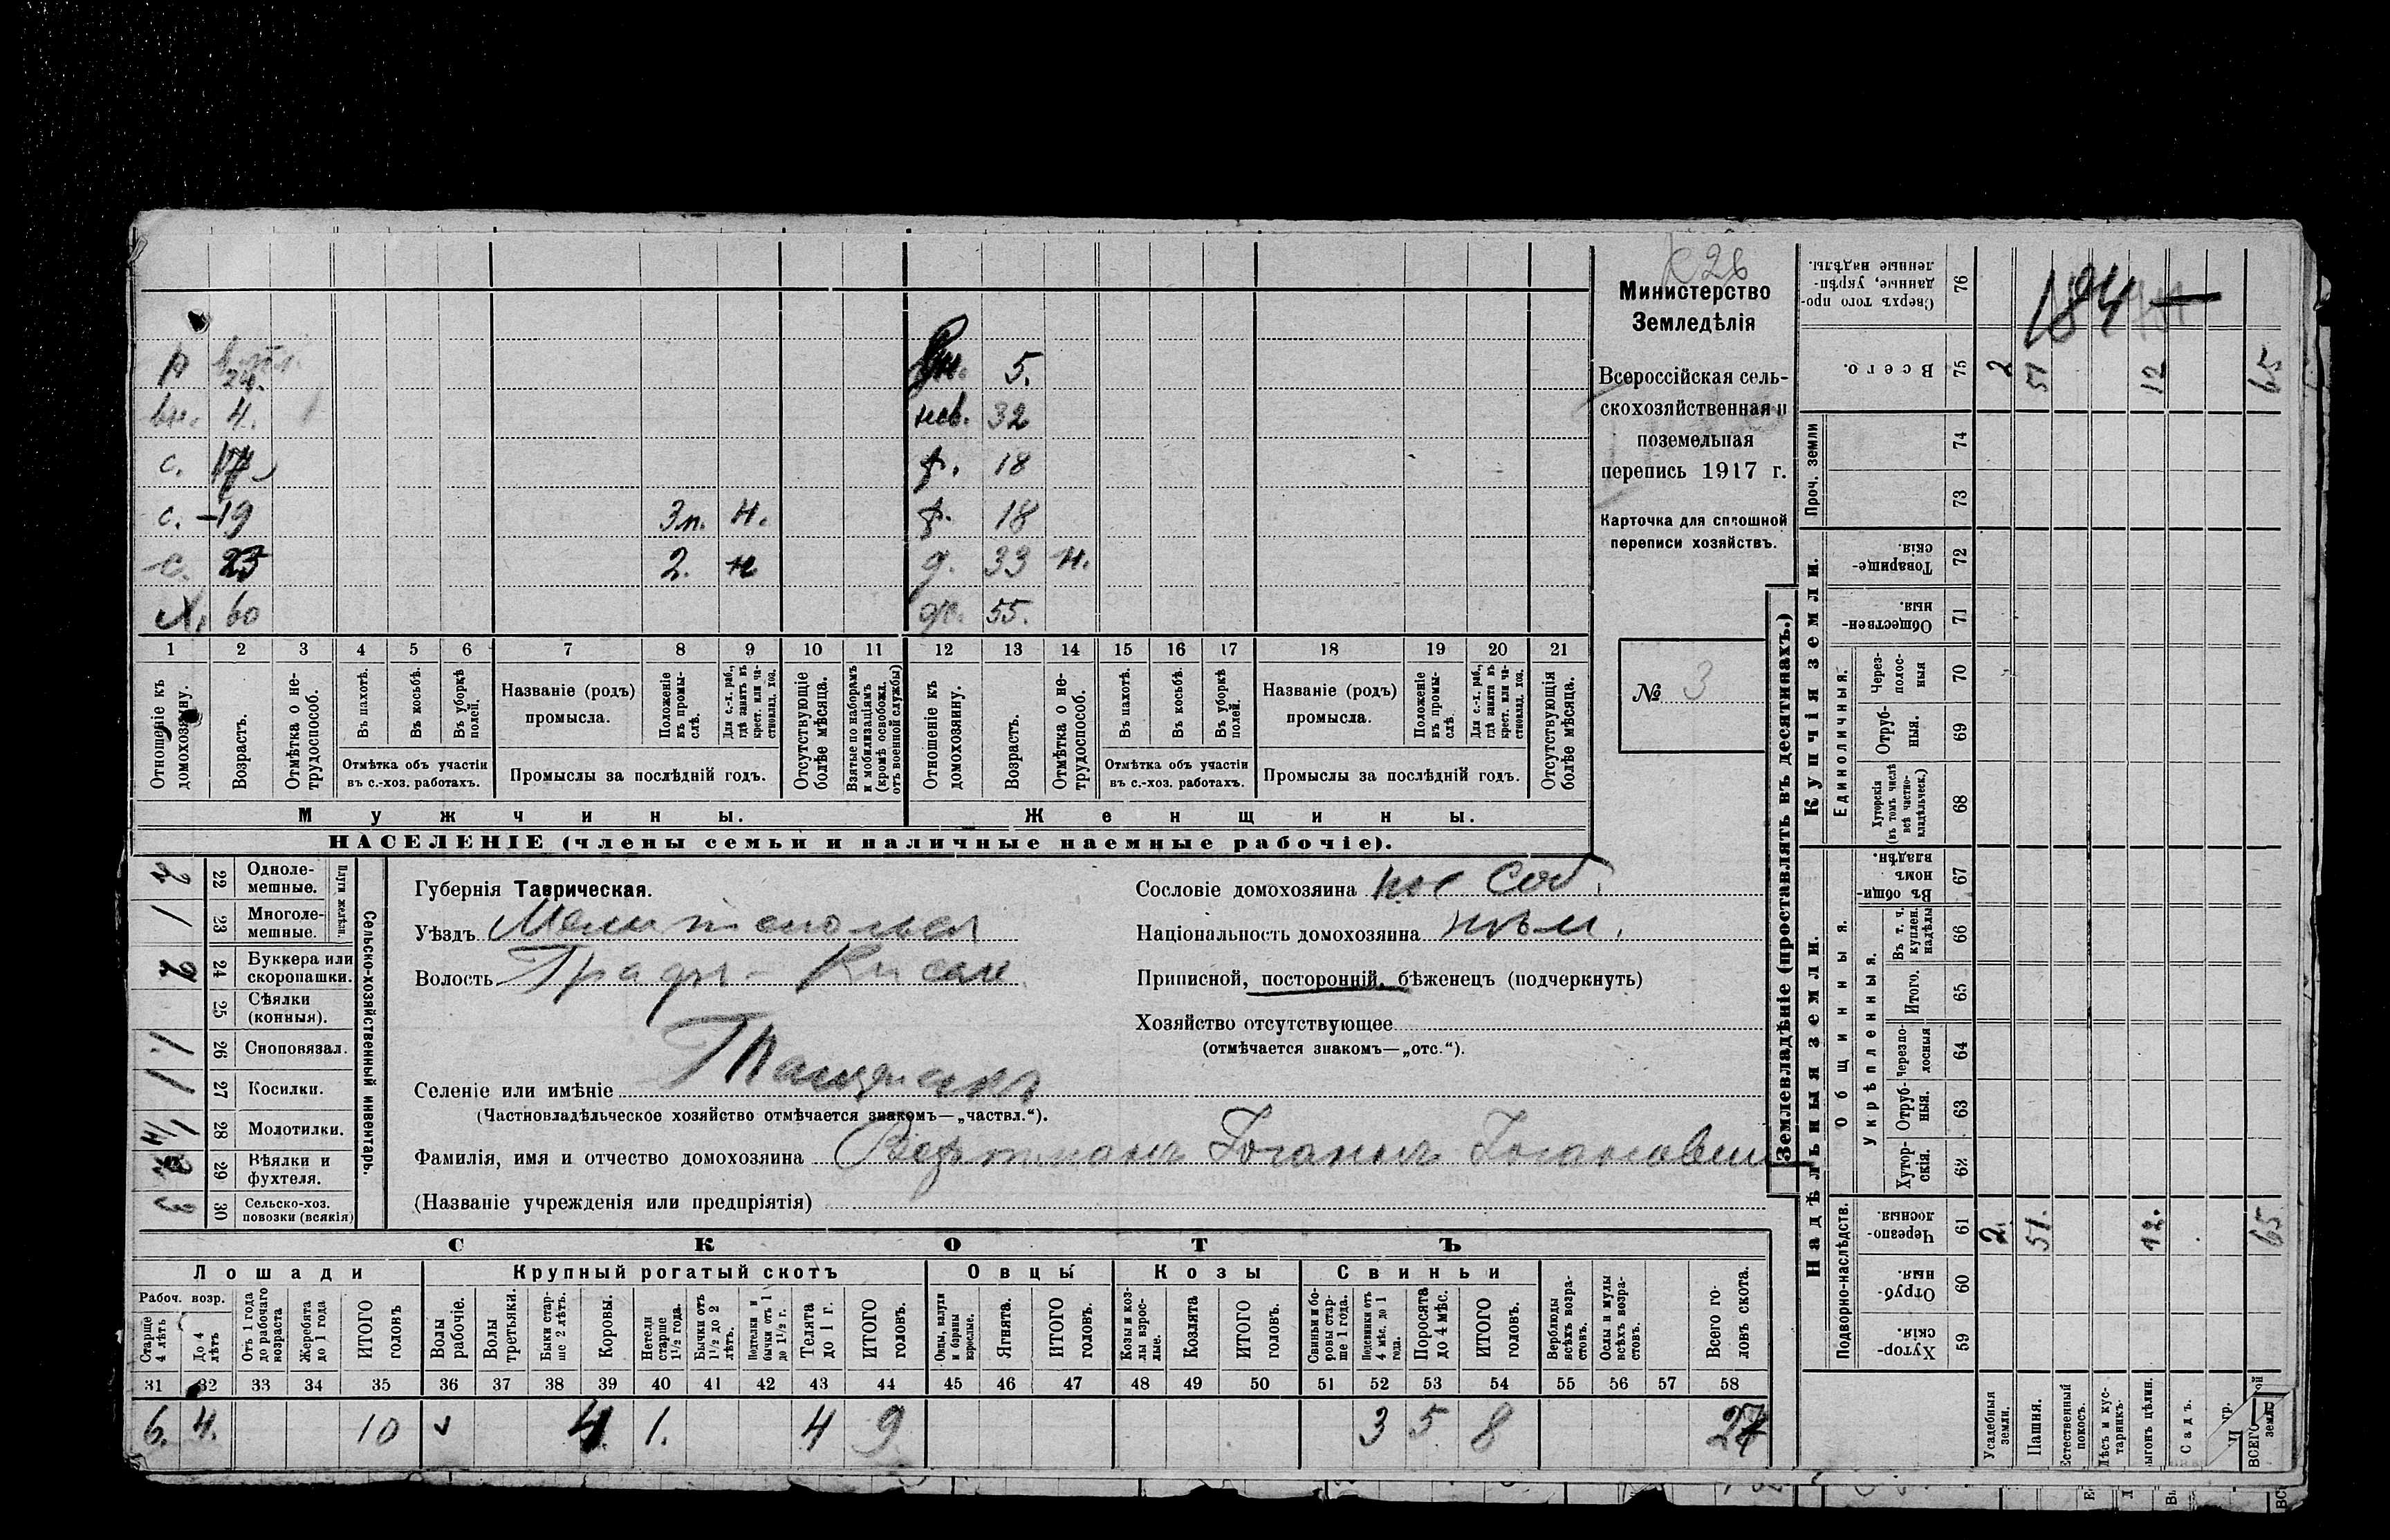 № 26
Министерство
Земледѣлія
Всероссійская сель-
скохозяйственная и
поземельная
перепись 1917 г.
Карточка для сплошной
переписи хозяйствъ.
№ 3
р 24.
вн. 4.
с. 17
с. 19 Зп. н.
с. 23 2. н
х. 60
вн. 5.
нев. 32
ф. 18
ф. 18
д. 33 н.
ж. 55.
1 2 3 4 5 6 7 8 9 10 11 12 13 14 15 16 17 18 19 20 21
Отношеніе къ домохозяину.
Возрастъ.
Отмѣтка о не-
трудоспособ.
Въ пахотѣ.
Въ косьбѣ.
Въ уборкѣ полей.
Отмѣтка объ участіи
въ с.-хоз. работахъ.
Названіе (родъ)
промысла.
Положеніе въ промы-
слѣ.
Для с.-х. раб., гдѣ занятъ въ крест. или ча-
стновлад. хоз.
Промыслы за послѣдній годъ.
Отсутствующіе болѣе мѣсяца.
Взятые по наборамъ и мобилизаціямъ (кромѣ освобожд. отъ военной службы)
Отношеніе къ домохозяину.
Возрастъ.
Отмѣтка о не-
трудоспособ.
Въ пахотѣ.
Въ косьбѣ.
Въ уборкѣ полей.
Отмѣтка объ участіи
въ с.-хоз. работахъ.
Названіе (родъ)
промысла.
Положеніе въ промы-
слѣ.
Для с.-х. раб., гдѣ занята въ крест. или ча-
стновлад. хоз.
Промыслы за послѣдній годъ.
Отсутствующія болѣе мѣсяца.
Мужчины.
Женщины.
НАСЕЛЕНІЕ (члены семьи и наличные наемные рабочіе).
Сельско-хозяйственный инвентарь.
Плуги желѣзн.
22 Одноле-
мешные.
1 23 Многоле-
мешные.
2 24 Буккера или
скоропашки.
25 Сѣялки
(конныя).
1 26 Сноповязал.
1 27 Косилки.
28 Молотилки.
29 Вѣялки и
фухтеля.
3 30 Сельско-хоз.
повозки (всякія)
Губернія Таврическая.
Уѣздъ Мелитопольск
Волость
Селеніе или имѣніе
(Частновладѣльческое хозяйство отмѣчается знакомъ—„частвл.“).
Фамилія, имя и отчество домохозяина
(Названіе учрежденія или предпріятія)
Сословіе домохозяина пос Соб.
Національность домохозяина нѣм.
Приписной, посторонній, бѣженецъ (подчеркнуть)
Хозяйство отсутствующее
(отмѣчается знакомъ—„отс.“).
СКОТЪ
Лошади
Крупный рогатый скотъ
Овцы
Козы
Свиньи
Рабоч. возр.
Старше 4 лѣтъ
До 4 лѣтъ
Отъ 1 года до рабочаго возраста
Жеребята до 1 года
ИТОГО головъ
Волы рабочіе.
Волы третьяки.
Быки стар-
ше 2 лѣтъ.
Коровы.
Нетели старше 1½ года.
Бычки отъ 1½ до 2 лѣтъ.
Подтелки и бычки отъ 1 до 1½ г.
Телята до 1 г.
ИТОГО головъ.
Овцы, валухи и бараны взрослые.
Ягнята.
ИТОГО головъ.
Козы и коз-
лы взрос-
лые.
Козлята
ИТОГО головъ.
Свиньи и бо-
ровы стар-
ше 1 года.
Подсвинки отъ 4 мѣс. до 1 года.
Поросята до 4 мѣс.
ИТОГО головъ.
Верблюды всѣхъ возра-
стовъ.
Ослы и мулы всѣхъ возра-
стовъ.
Всего го-
ловъ скота.
31 32 33 34 35 36 37 38 39 40 41 42 43 44 45 46 47 48 49 50 51 52 53 54 55 56 57 58
6. 4. 10 4 1. 4 9 3 5 8 27
Землевладѣніе (проставлять въ десятинахъ.)
Надѣльныя земли.
Купчія земли.
Проч. земли
Подворно-наслѣдств.
Общинныя.
Укрѣпленныя.
Единоличныя.
Сверхъ того про-
данные, укрѣп-
ленные надѣлы. 76 184
Всего. 75 2 51 12 65
74
73
Товарище-
скія. 72
Обществен-
ныя. 71
Через-
полос-
ныя 70
Отруб-
ныя. 69
Хуторскія (въ томъ числѣ всѣ частно-
владѣльческ.) 68
Въ общи-
номъ владѣн. 67
Въ т. ч. куплен. надѣлы 66
Итого. 65
Черезпо-
лосныя 64
Отруб-
ныя. 63
Хутор-
скія. 62
Черезпо-
лосныя. 61 2. 51. 12. 65
Отруб-
ныя. 60
Хутор-
скія. 59
Усадебныя земли.
Пашня.
Естественный покосъ.
Лѣсъ и кус-
тарникъ.
Выгонъ цѣлин.
Садъ.
ВСЕГО